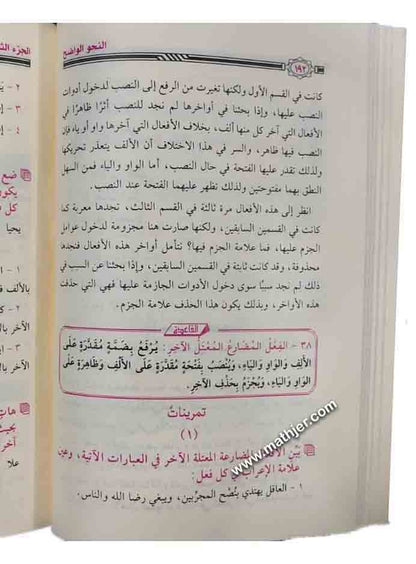 ١٩٢
النحو الواضح
الجزء
كانت في القسم الأول ولكنها تغيرت من الرفع إلى النصب لدخول أدوات
النصب عليها، وإذا بحثنا في أواخرها لم نجد للنصب أثرًا ظاهرًا في
الأفعال التي آخر كل منها ألف، بخلاف الأفعال التي آخرها واو أو ياء فإن
النصب فيها ظاهر، والسر في هذا الاختلاف أن الألف يتعذر تحريكها
ولذلك تقدر عليها الفتحة في حال النصب، أما الواو والياء فمن السهل
النطق بهما مفتوحتين ولذلك تظهر عليهما الفتحة عند النصب.
انظر إلى هذه الأفعال مرة ثالثة في القسم الثالث، تجدها معربة كما
كانت في القسمين السابقين، ولكنها صارت هنا مجزومة لدخول عوامل
الجزم عليها، فما علامة الجزم فيها؟ تأمل أواخر هذه الأفعال فتجدها
محذوفة، وقد كانت ثابتة في القسمين السابقين، وإذا بحثنا عن السبب في
ذلك لم نجد سببًا سوى دخول الأدوات الجازمة عليها فهي التي حذفت
هذه الأواخر، وبذلك يكون هذا الحذف علامة الجزم.
القاعدة
٣٨ - الفِعْلُ المُضَارِعُ المُعْتَلُّ الآخِرِ: يُرْفَعُ بِضَمَّةٍ مُقَدَّرَةٍ عَلَى
الأَلِفِ وَالوَاوِ وَاليَاءِ، وَيُنْصَبُ بِفَتْحَةٍ مُقَدَّرَةٍ عَلَى الأَلِفِ وَظَاهِرَةٍ عَلَى
الوَاوِ وَاليَاءِ، وَيُجْزَمُ بِحَذْفِ الآخِرِ.
تمرينات
(١)
بَيِّن الأفعال المضارعة المعتلة الآخر في العبارات الآتية، وعين
علامة الإعراب في كل فعل:
١ - العاقل يهتدي بنُصْح المجرِّبين، ويبغي رضا الله والناس.
www.mathjer.com